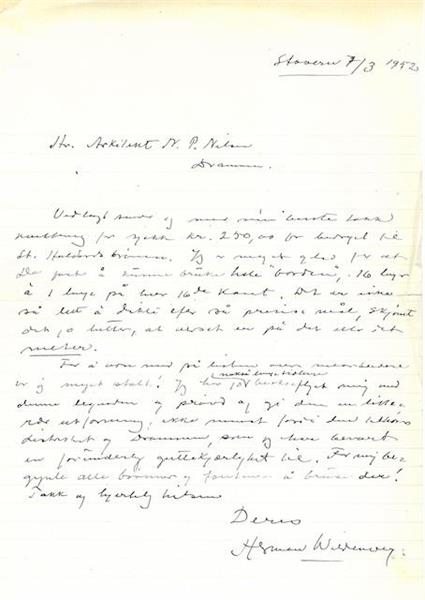 Stavern 7/3 1952
Hr. Arkitekt N. P. Nilsen
Drammen.
Vedlagt sender jeg med min beste takk
kvittering for sjekk kr. 250,00 for bidraget til
St. Halvards brønnen. Jeg er meget glad for at
De fant å kunne bruke hele "borden",
à 1 linje på hver 16de kant. Det er ikke
så lett å dikte efter så presise mål, skjønt
det jo hitter, at verset er på det
meter.
For å være med på listen over medarbeidere
er jeg meget stolt! Jeg har før beskjeftiget meg med
nokså inngående
denne legenden og prøvd å gi den en litte-
rær utformning, ikke minst fordi den tilhører
distriktet og Drammen, som jeg har bevart
en guttekjærlighet til. For mig be-
gynte alle brønner og fontener å bruse der!
Takk og hjertelig hilsen
Deres
Herman Wildenvey.